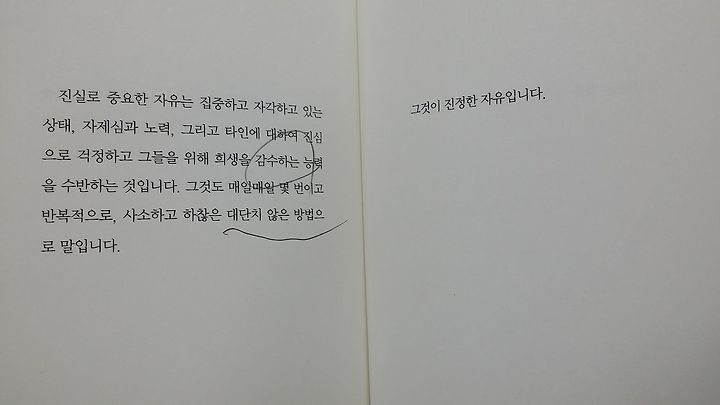 진실로 중요한 자유는 집중하고 자각하고 있는
상태, 자제심과 노력, 그리고 타인에 대하여 진심
으로 걱정하고 그들을 위해 희생을 감수하는 능력
을 수반하는 것입니다. 그것도 매일매일 몇 번이고
반복적으로, 사소하고 하찮은 대단치 않은 방법으
로 말입니다.
그것이 진정한 자유입니다.